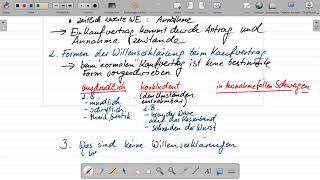 zeitlich zweite WE: Annahme
→ Ein Kaufvertrag kommt durch Antrag und
Annahme zustande
2. Formen der Willenserklärung beim Kaufvertrag
→ beim "normalen" Kaufvertrag ist keine bestimmte
Form vorgeschrieben
ausdrücklich konkludent in Ausnahmefällen Schweigen
z.B. (den Umständen
- mündlich entnehmbar)
- schriftlich z.B.
- Mimik, Gestik - Legen der Ware
auf das Kassenband
- Schneiden der Wurst
3. Was sind keine Willenserklärungen